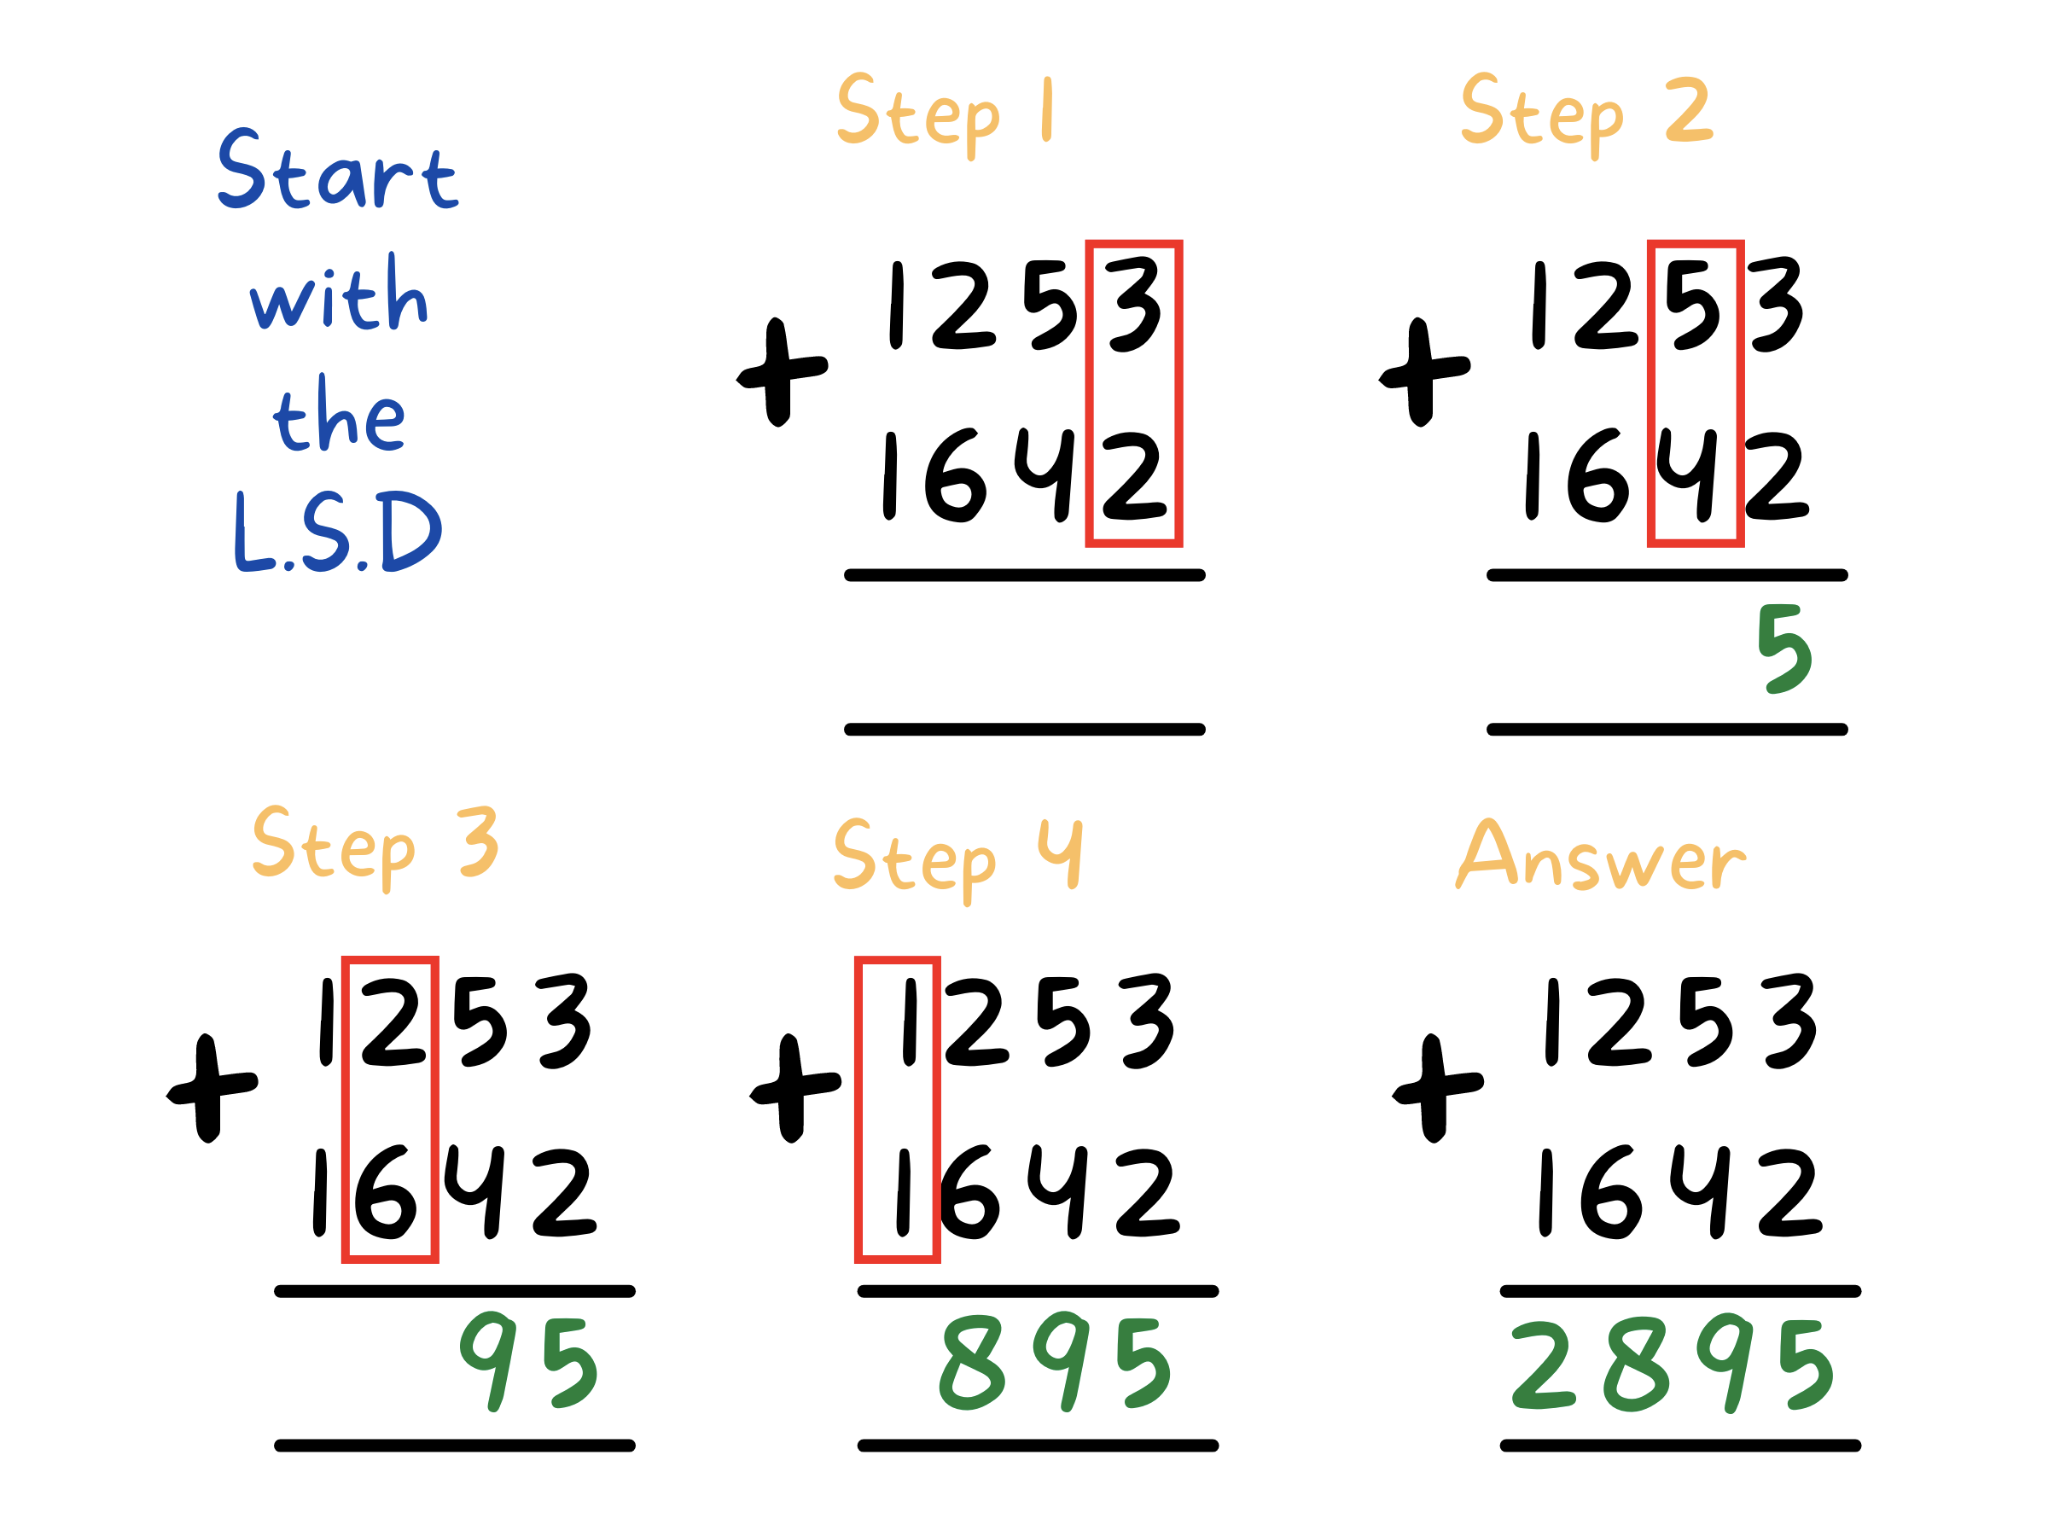 Start
with
the
L.S.D
Step 1
1253
+
1642
Step 2
1253
+
1642
5
Step 3
1253
+
1642
95
Step 4
1253
+
1642
895
Answer
1253
+
1642
2895